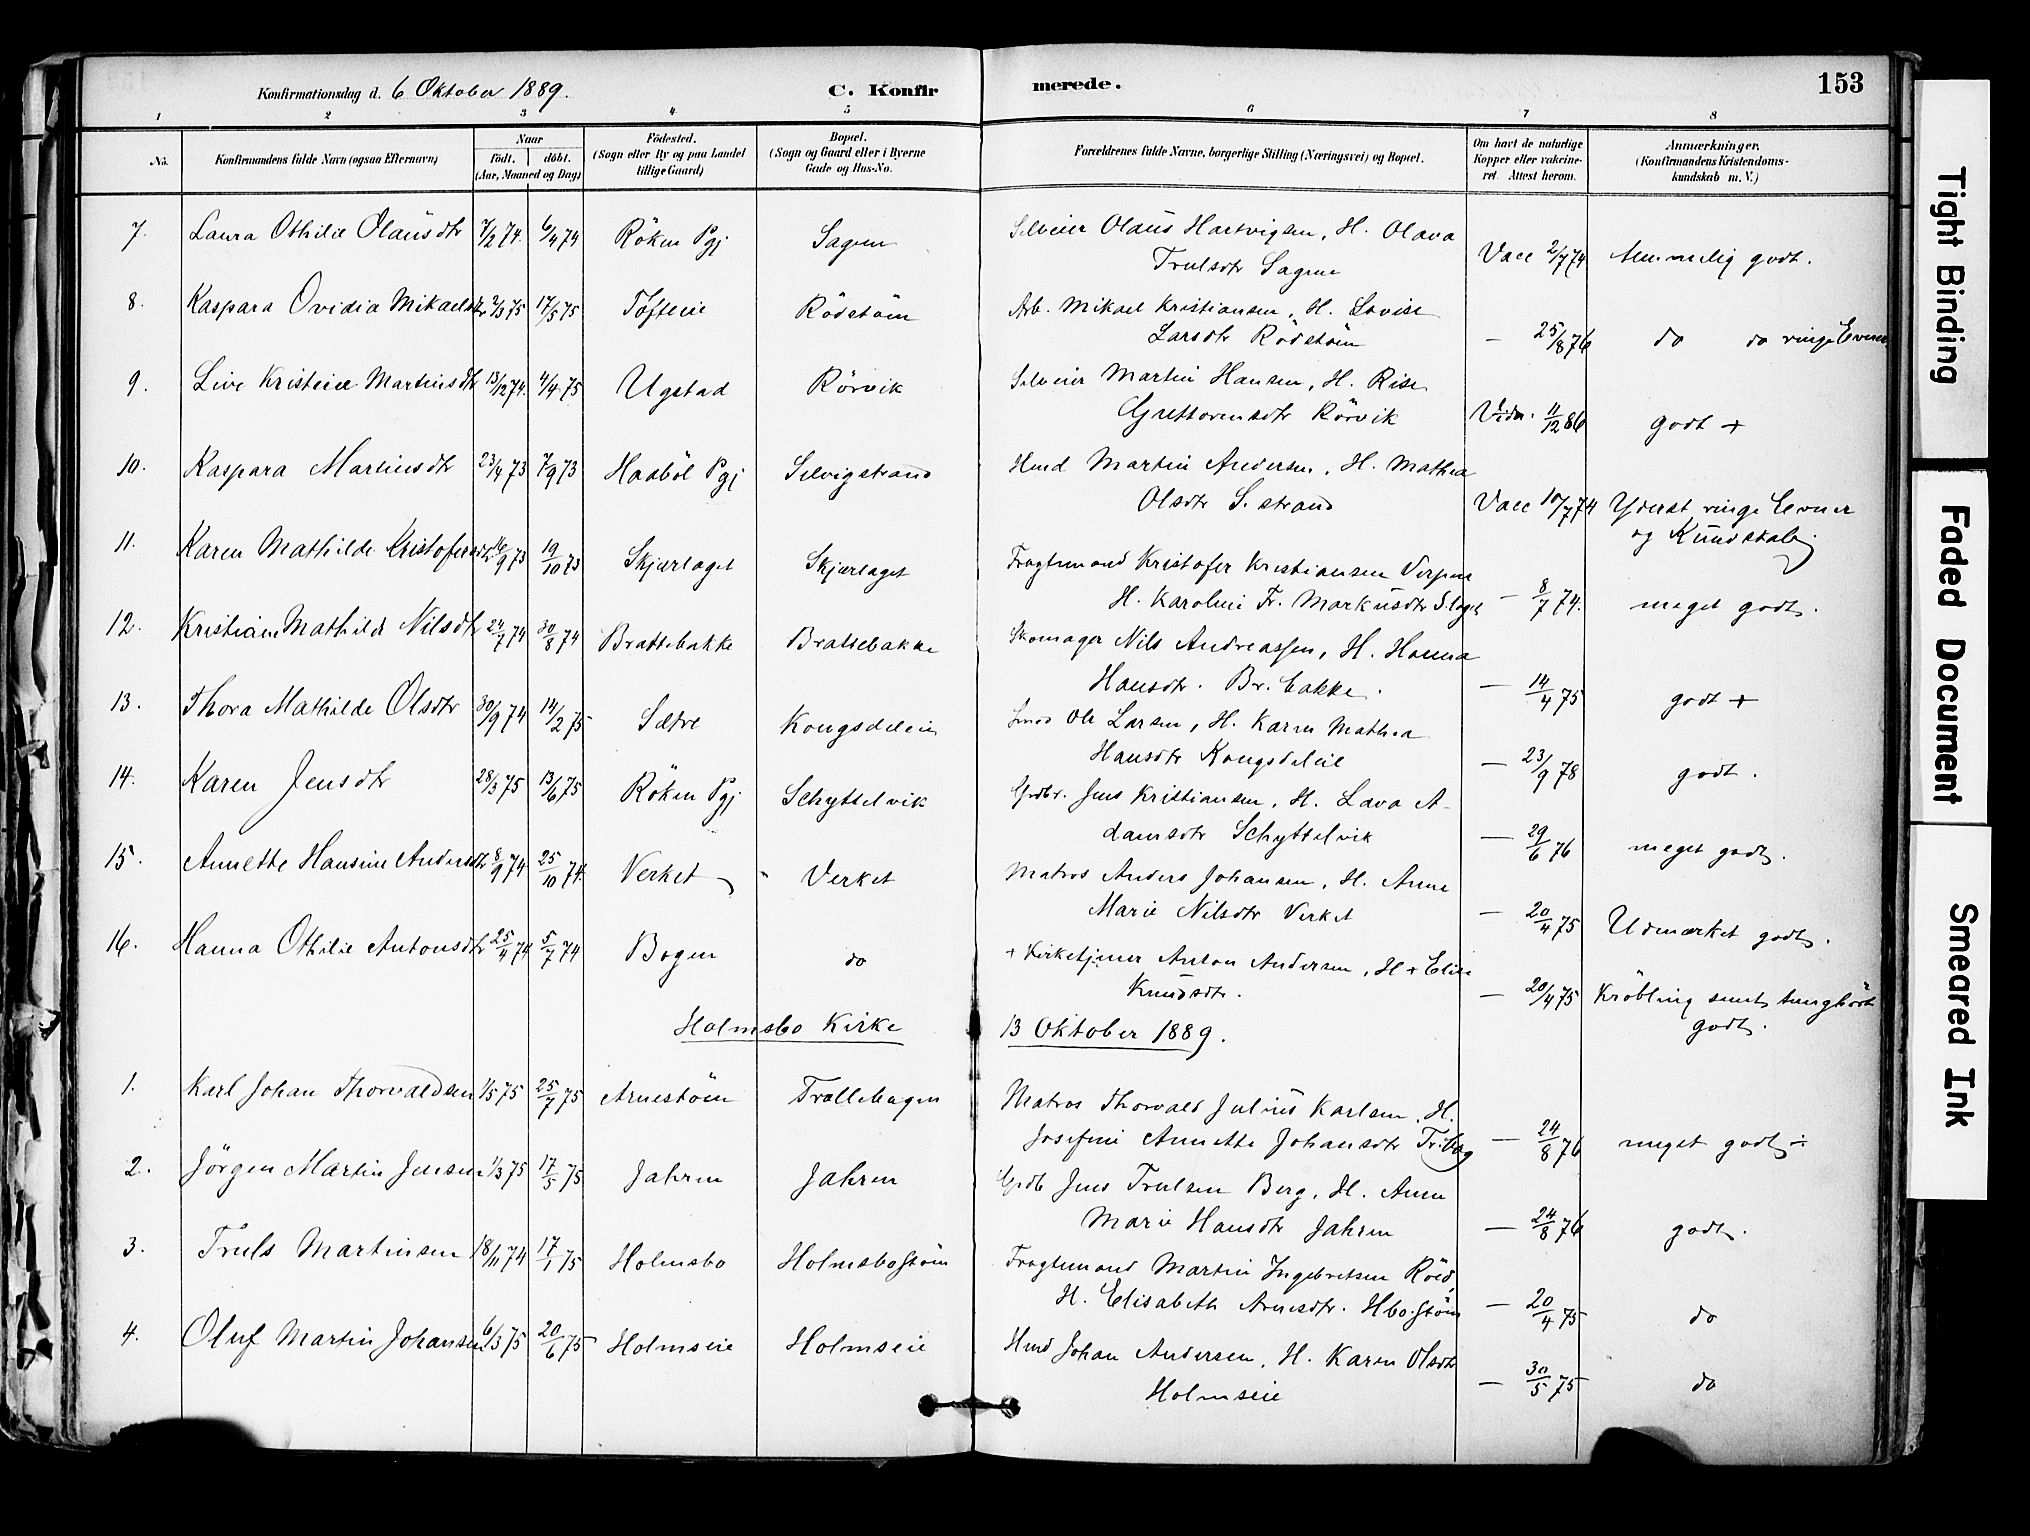 Konfirmationsdag d. 6 Oktober 1889.
C. Konfirmerede.
153
1 2 3 4 5 6 7 8
No. Konfirmandens fulde Navn (ogsaa Efternavn) Naar födt. döbt. (Aar, Maaned og Dag) Födested. (Sogn eller By og paa Landet tillige Gaard) Bopæl. (Sogn og Gaard eller i Byerne Gade og Hus-No. Forældrenes fulde Navne, borgerlige Stilling (Næringsvei) og Bopæl. Om havt de naturlige Kopper eller vakcineret. Attest herom. Anmærkninger. (Konfirmandens Kristendomskundskab m. V.)
7. Laura Othilie Olausdtr 7/2 74. 6/4 74 Röken Pgj Sagene Selveier Olaus Hartvigsen, H. Olava
Trulsdtr Sagene Vacc 2/7 74 Temmelig godt.
8. Kaspara Ovidia Mikaelsdtr 2/3 75 17/5 75 Tofteeie Rödstöen Arb. Mikael Kristiansen, H. Lovise
Larsdtr Rödstöen — 25/8 76 do do ringe Evner
9. Live Kristine Martinsdtr 13/12 74. 4/4 75 Ugstad Rörvik Selveier Martin Hansen, H. Rise
Guttormsdtr Rörvik 11/12 86 godt +
10. Kaspara Martinsdtr 23/4 73 7/9 73 Haaböl Pgj Selvigstrand Hmd Martin Andersen, H. Mathea
Olsdtr S. strand Vacc 10/7 74 Yderst ringe Evner
og Kundskab
11. Karen Mathilde Kristofersdtr 16/9 73 19/10 73 Skjærlaget Skjærlaget Fragtemand Kristofer Kristiansen Verpen
H. Karoline Fr. Markusdtr S.laget — 8/7 74. meget godt.
12. Kristiane Mathilde Nilsdtr 24/7 74 30/8 74 Brattebakke Brattebakke Skomager Nils Andreassen, H. Hanna
Hansdtr. Br. bakke. — 14/4 75 godt +
13. Thora Mathilde Olsdtr 30/9 74 14/2 75 Sætre Kongsdeleie Smed Ole Larsen, H. Karen Mathea
Hansdtr Kongsdeleie — 23/9 78 godt.
14. Karen Jensdtr 28/3 75 13/6 75 Röken Pgj Schyttelvik Grdbr. Jens Kristiansen, H. Lava A-
damsdtr Schyttelvik — 29/6 76 meget godt.
15. Annette Hansine Andersdtr 8/9 74 25/10 74. Verket Verket Matros Anders Johansen, H. Anne
Marie Nilsdtr Verket — 20/4 75 Udmærket godt.
16. Hanna Othilie Antonsdtr 25/4 74 5/7 74 Bogen do + Kirketjener Anton Andersen, H + Elise
Knudsdtr. — 20/4 75 Kröbling samt tunghört
godt.
Holmsbo Kirke 13 Oktober 1889.
1. Karl Johan Thorvaldsen 1/5 75 25/7 75 Arnestöen Trollebogen Matros Thorvald Julius Karlsen, H.
Josefine Annette Johansdtr Tr.bog — 24/8 76 meget godt ÷
2. Jörgen Martin Jensen 1/3 75 17/5 75 Jahren Jahren Grdb Jens Trulsen Berg, H. Anne
Marie Hansdtr Jahren — 24/8 76 godt.
3. Truls Martinsen 18/11 74 17/1 75 Holmsbo Holmsbostöen Fragtemand Martin Ingebretsen Röed,
H. Elisabeth Arnesdtr. Hbo.stöen — 20/4 75 do
4. Oluf Martin Johansen 6/3 75 20/6 75 Holmseie Holmseie Hmd Johan Andersen, H. Karen Olsdtr
Holmseie — 30/5 75 do
Tight Binding
Faded Document
Smeared Ink